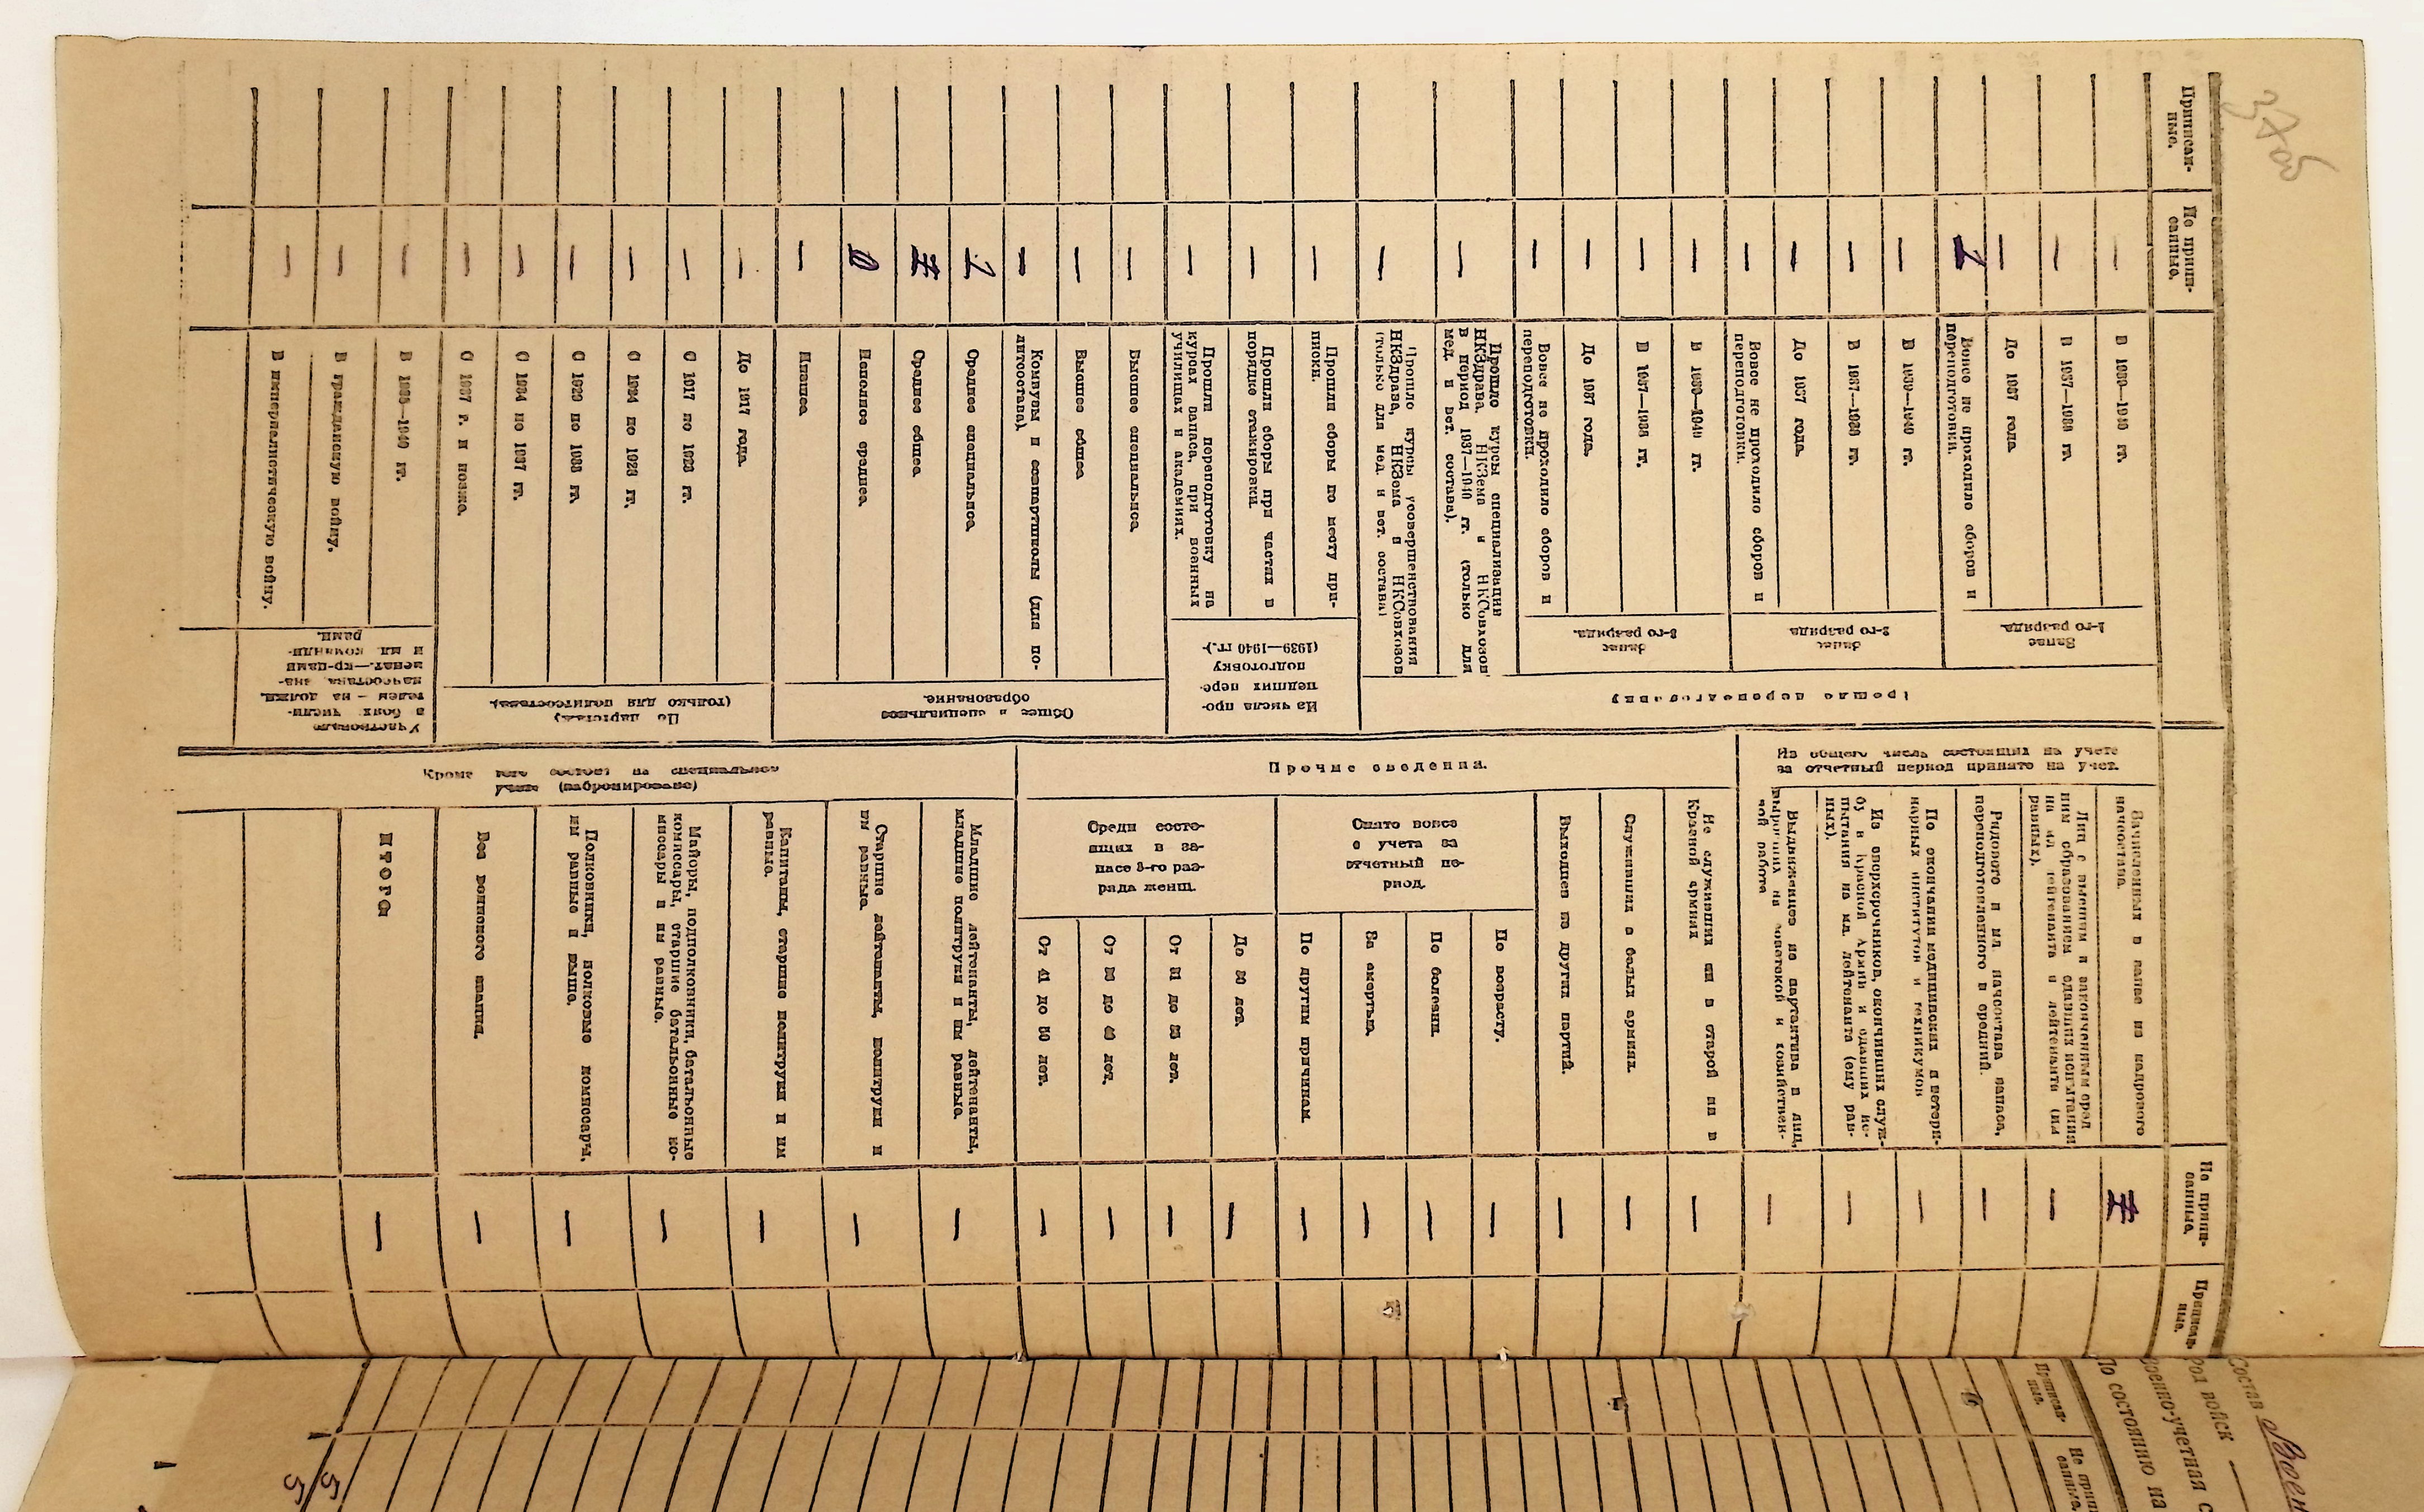 Приписан-
ные.
Не припи-
санные.
Прошло переподготовку
Запас
1-го разряда.
В 1939—1940 гг.
—
В 1937—1938 гг.
—
До 1937 года.
—
Вовсе не проходило сборов и
переподготовки.
Запас
2-го разряда
В 1939—1940 гг.
—
В 1937—1938 гг.
—
До 1937 года.
—
Вовсе не проходило сборов и
переподготовки.
—
Запас
3-го разряда.
В 1939—1940 гг.
—
В 1937—1938 гг.
—
До 1937 года.
—
Вовсе не проходило сборов и
переподготовки.
—
Прошло курсы специализации
НКЗдрава, НКЗема и НКСовхозов
в период 1937—1940 гг. (только для
мед. и вет. состава).
—
Прошло курсы усовершенствования
НКЗдрава, НКЗема и НКСовхозов
(только для мед. и вет. состава)
—
Из числа про-
шедших пере-
подготовку
(1939—1940 гг.).
Прошли сборы по месту при-
писки.
—
Прошли сборы при частях в
порядке стажировки.
—
Прошли переподготовку на
курсах запаса, при военных
училищах и академиях.
—
Общее и специальное
образование.
Высшее специальное.
—
Высшее общее.
—
Комвузы и совпартшколы (для по-
литсостава).
—
Среднее специальное.
Среднее общее.
Неполное среднее.
Низшее.
—
По партстажу
(только для политсостава).
До 1917 года.
—
С 1917 по 1923 гг.
—
С 1924 по 1928 гг.
—
С 1929 по 1933 гг.
—
С 1934 по 1937 гг.
—
С 1937 г. и позже.
—
Участвовало
в боях числи-
телем — на должн.
начсостава, зна-
менат.—кр-цами
и мл. команди-
рами.
В 1938—1940 гг.
—
В гражданскую войну.
—
В империалистическую войну.
—
Из общего числа состоящих на учете
за отчетный период принято на учет.
Не припи-
санные.
Приписан-
ные.
Зачисленных в запас из кадрового
начсостава.
Лиц с высшим и законченным сред-
ним образованием сдавших испытания
на мл. лейтенанта и лейтенанта (им
равных).
—
Рядового и мл. начсостава запаса,
переподготовленного в средний.
—
По окончании медицинских и ветери-
нарных институтов и техникумов
—
Из сверхсрочников, окончивших служ-
бу в Красной Армии и сдавших ис-
пытания на мл. лейтенанта (ему рав-
ных).
—
Выдвиженцев из партактива и лиц,
выросших на советской и хозяйствен-
ной работе
—
Прочие сведения.
Не служивших ни в старой ни в
Красной армиях
—
Служивших в белых армиях.
—
Выходцев из других партий.
—
Снято вовсе
с учета за
отчетный пе-
риод.
По возрасту.
—
По болезни.
—
За смертью.
—
По другим причинам.
—
Среди состо-
ящих в за-
пасе 3-го раз-
ряда женщ.
До 30 лет.
—
От 31 до 35 лет.
—
От 36 до 40 лет.
—
От 41 до 50 лет.
—
Кроме того состоит на специальном
учете (забронировано)
Младшие лейтенанты, лейтенанты,
младшие политруки и им равные.
—
Старшие лейтенанты, политруки и
им равные.
—
Капитаны, старшие политруки и им
равные.
—
Майоры, подполковники, батальонные
комиссары, старшие батальонные ко-
миссары и им равные.
—
Полковники, полковые комиссары,
им равные и выше.
—
Без воинского звания.
—
Итого
—
Состав
Род войск —
Военно-учетная с
По состоянию на
Приписан-
ные.
Не припи-
санные.
5
5